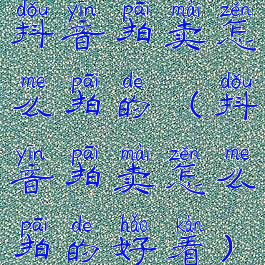 dǒu yīn pāi mài zěn
抖音拍卖怎
me pāi de dǒu
么拍的（抖
yīn pāi mài zěn me
音拍卖怎么
pāi de hǎo kàn
拍的好看）